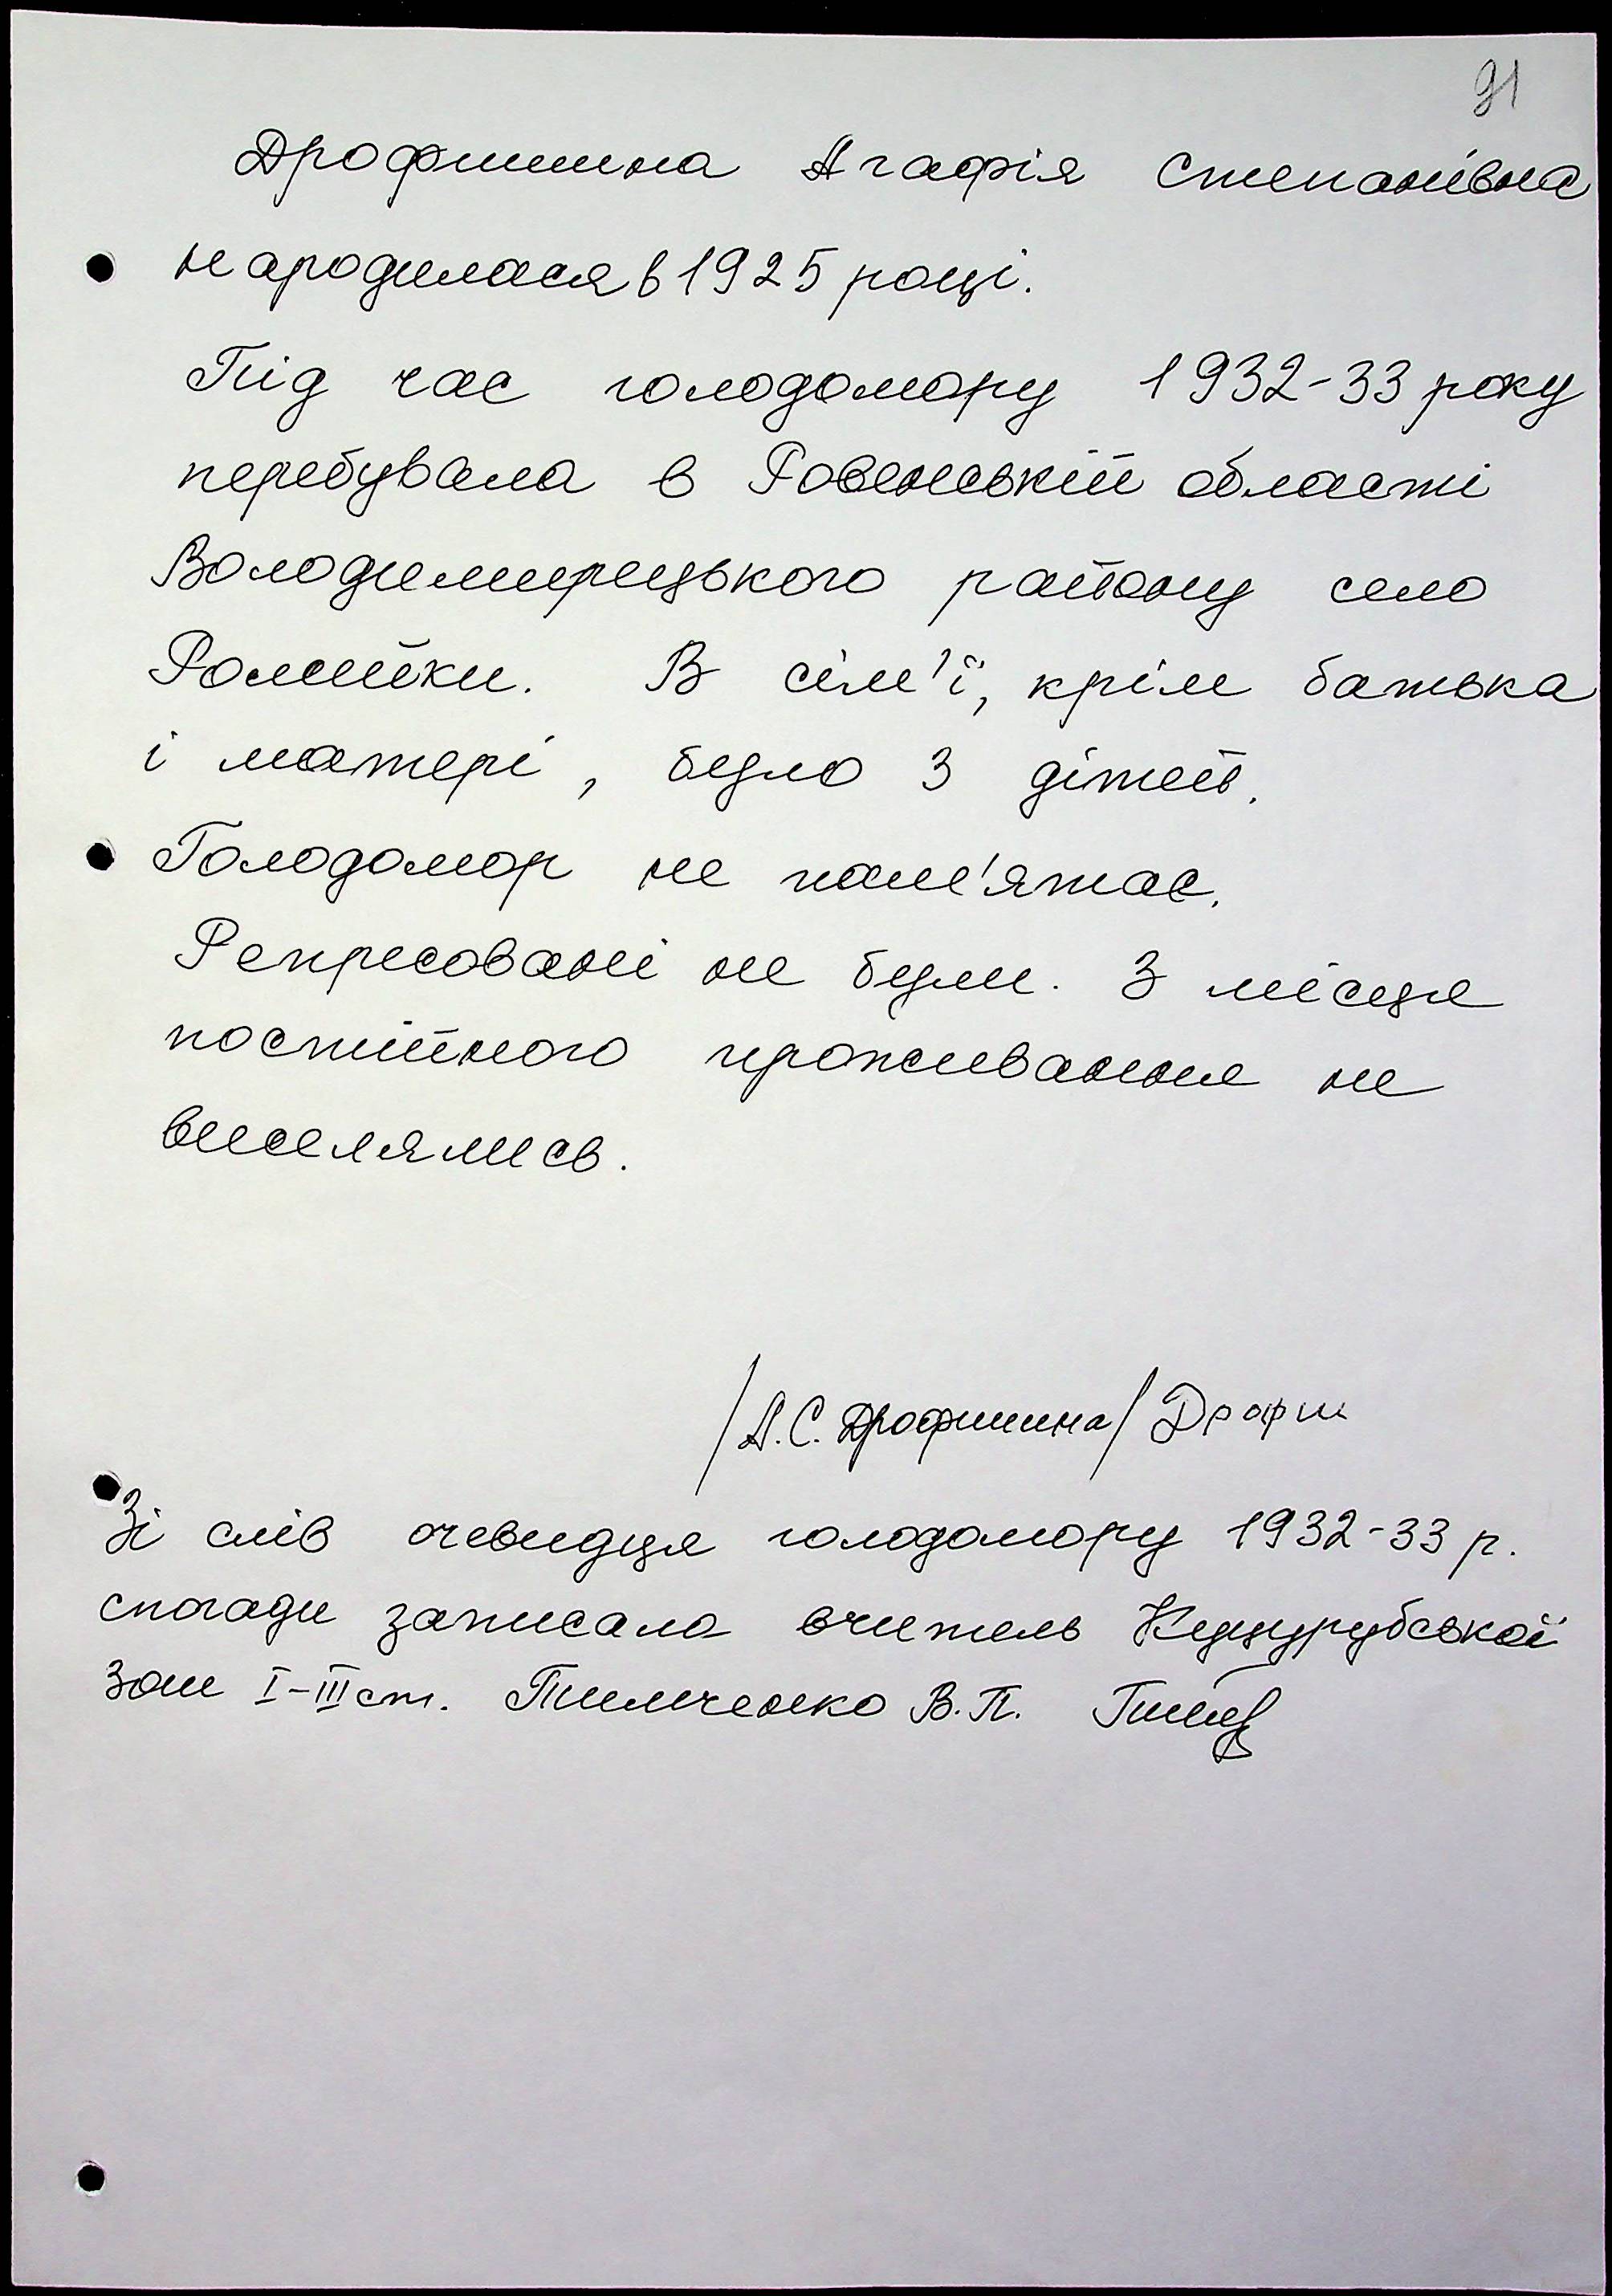 91
Дрофишина Агафія Степанівна
народилася в 1925 році.
Під час голодомору 1932-33 року
перебувала в Ровенській області
Володимирецького району село
Ромейки. В сім'ї, крім батька
і матері, було 3 дітей.
Голодомор не пам'ятає.
Репресовані не були. З місця
постійного проживання не
виселялись.
/А.С. Дрофишина/ Дрофи
Зі слів очевидця голодомору 1932-33 р.
спогади записала вчитель Куцурубської
зош І-ІІІ ст. Тимченко В.П.